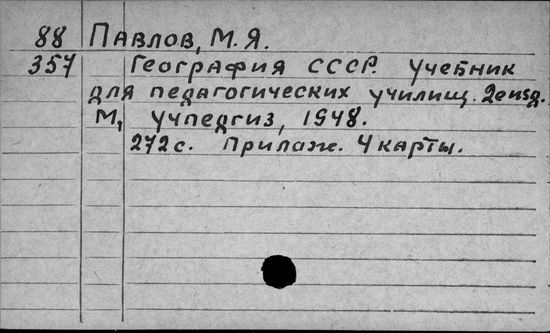 88 Павлов, М.Я.
357 География СССР. Учебник
для педагогических училищ. 2е изд.
М, учпедгиз, 1948.
272 с. Прилож. 4 карты.